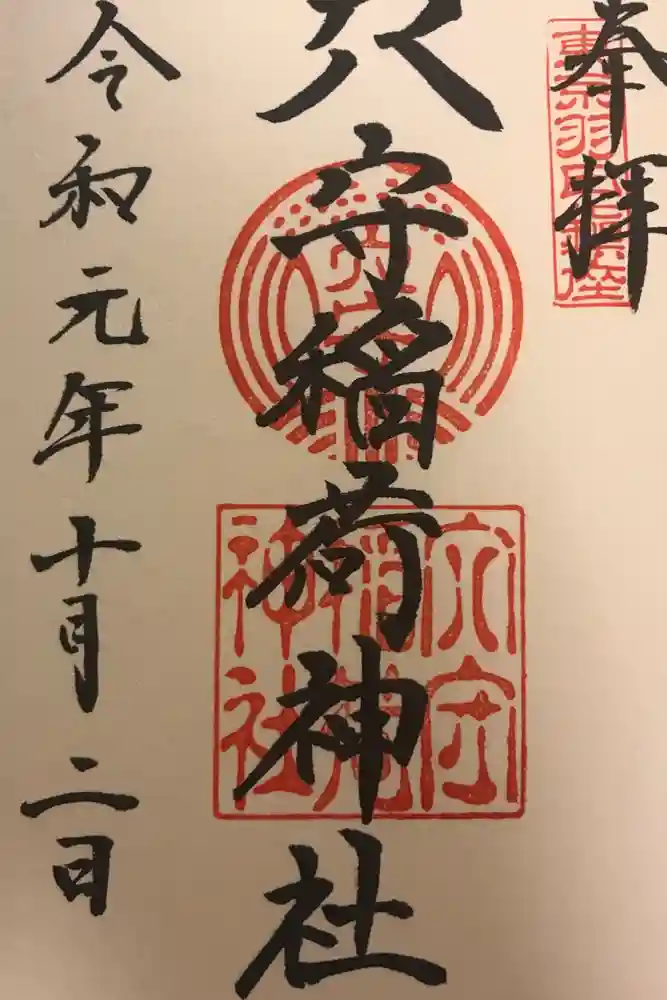 奉拝
東京羽田鎮座
穴守稲荷神社
穴守
稲荷
神社
令和元年十月二日